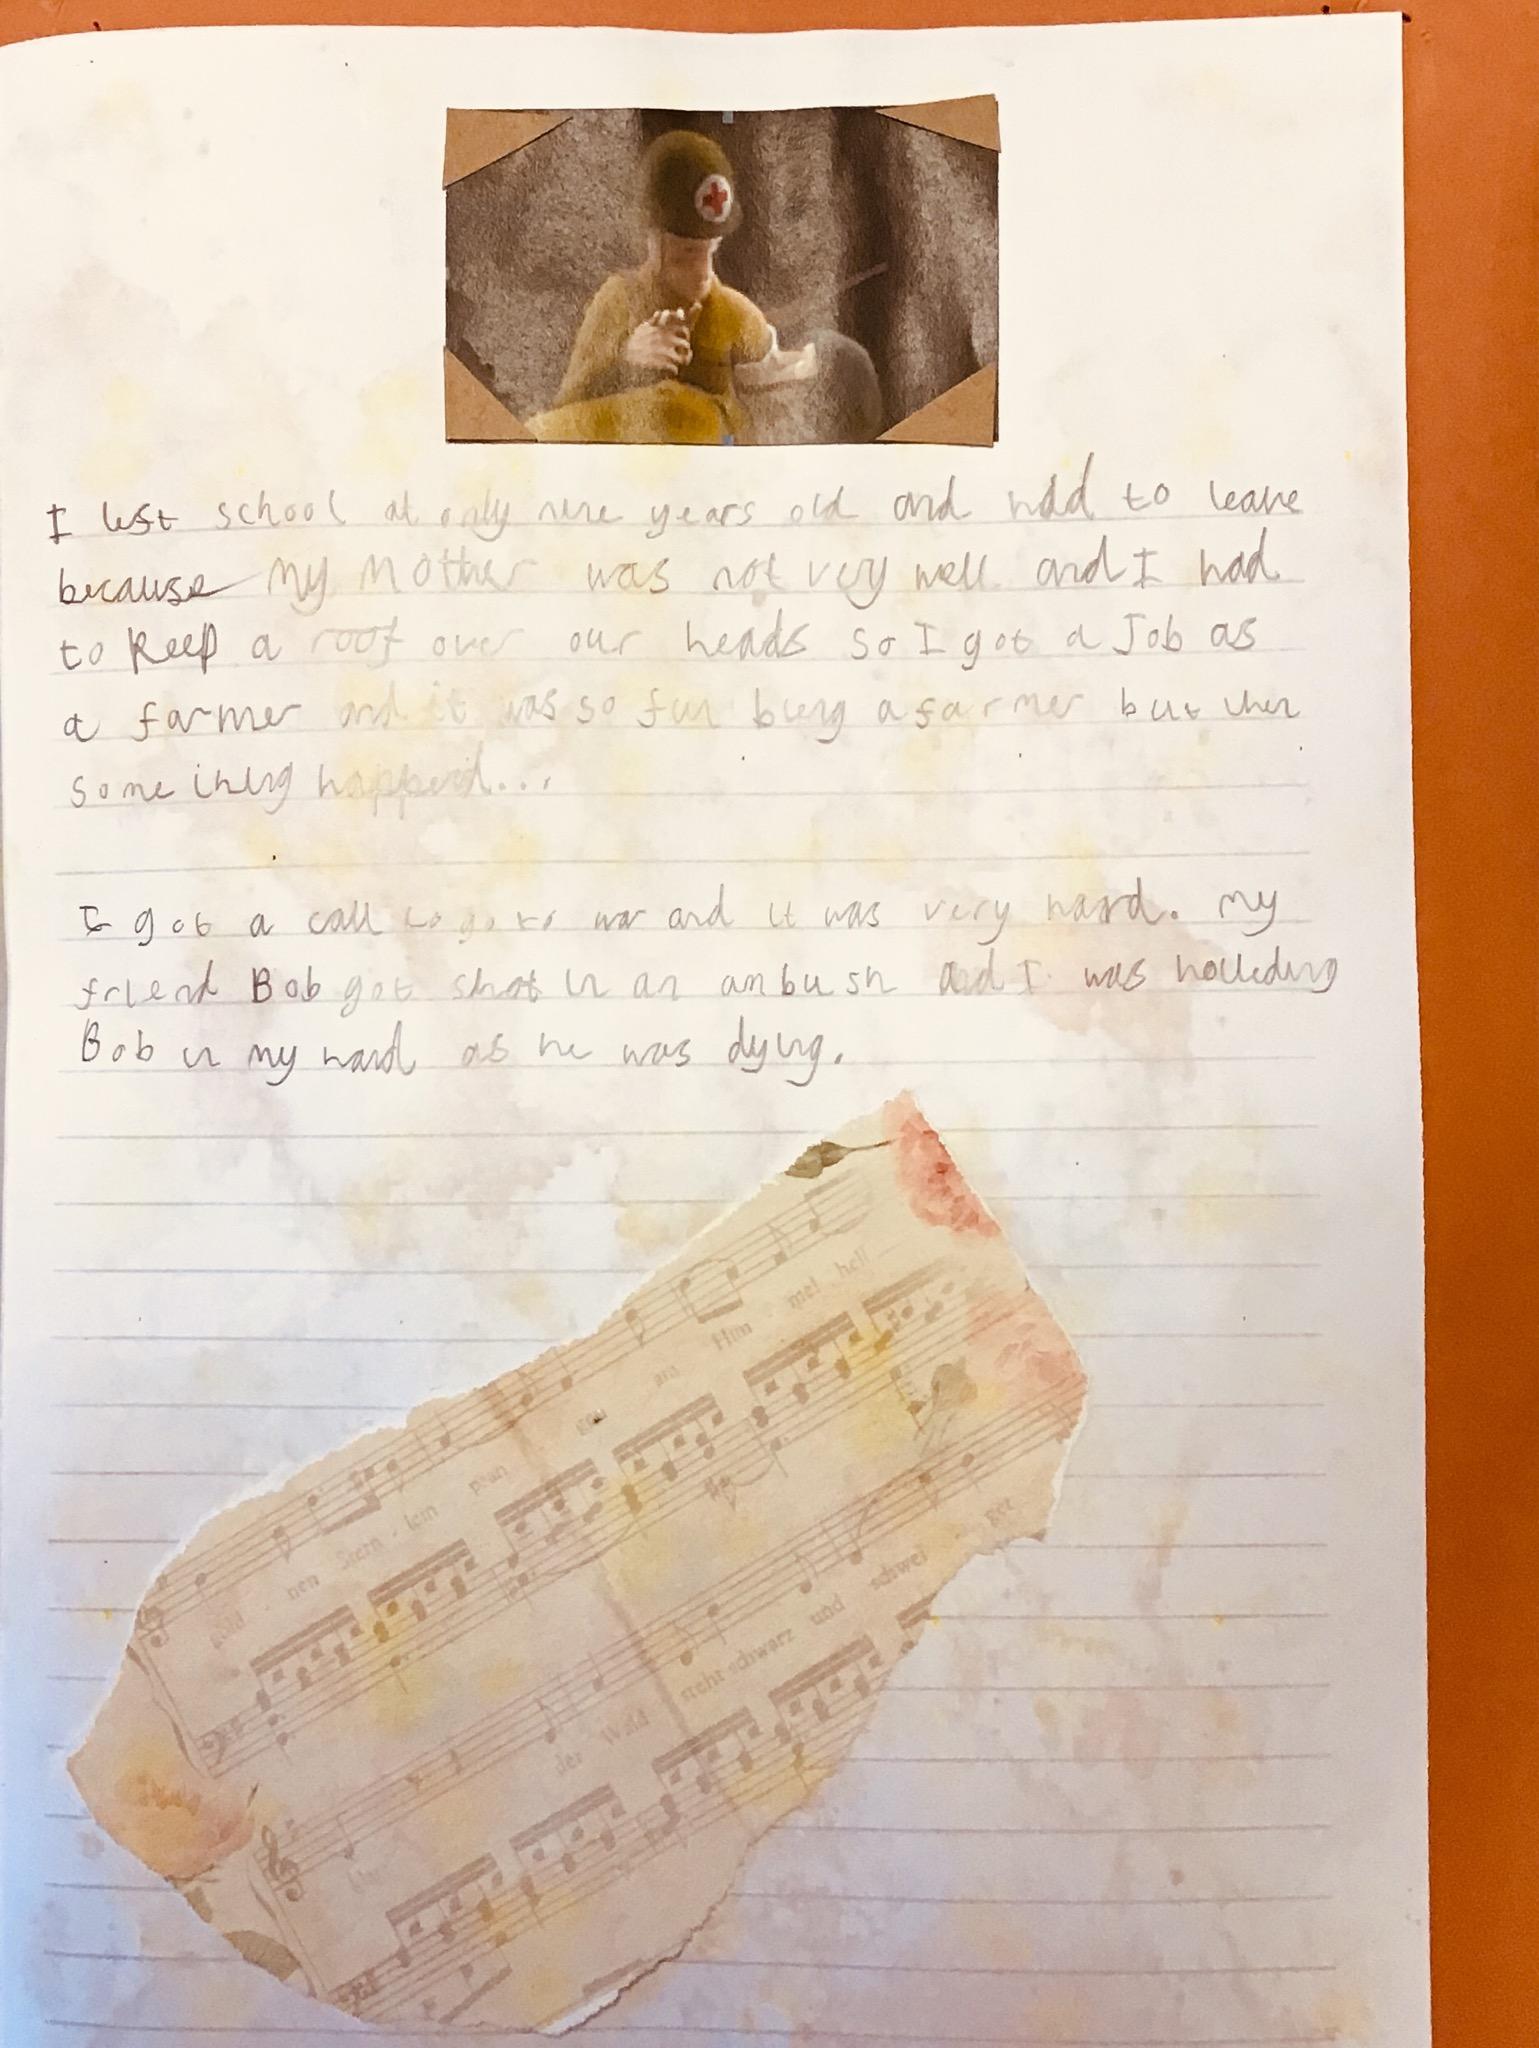 I left school at only nine years old and had to leave
because my Mother was not very well and I had
to keep a roof over our heads so I got a Job as
a farmer and it was so fun being a farmer but then
something happend...
I got a call to go to war and it was very hard. My
friend Bob got shot in an ambush and I was holleding
Bob in my hand as he was dying.
gold - nen Stern - lein pran - gen am Him - mel hell
der Wald steht schwarz und schwei - get